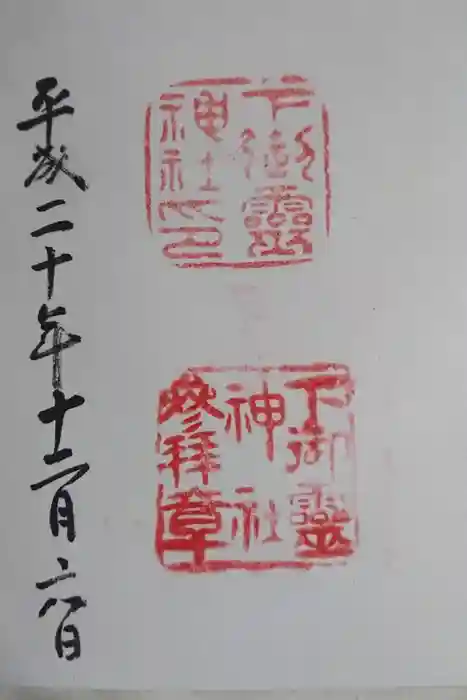 下御靈
神社印
下御靈
神社
参拝章
平成二十年十二月六日